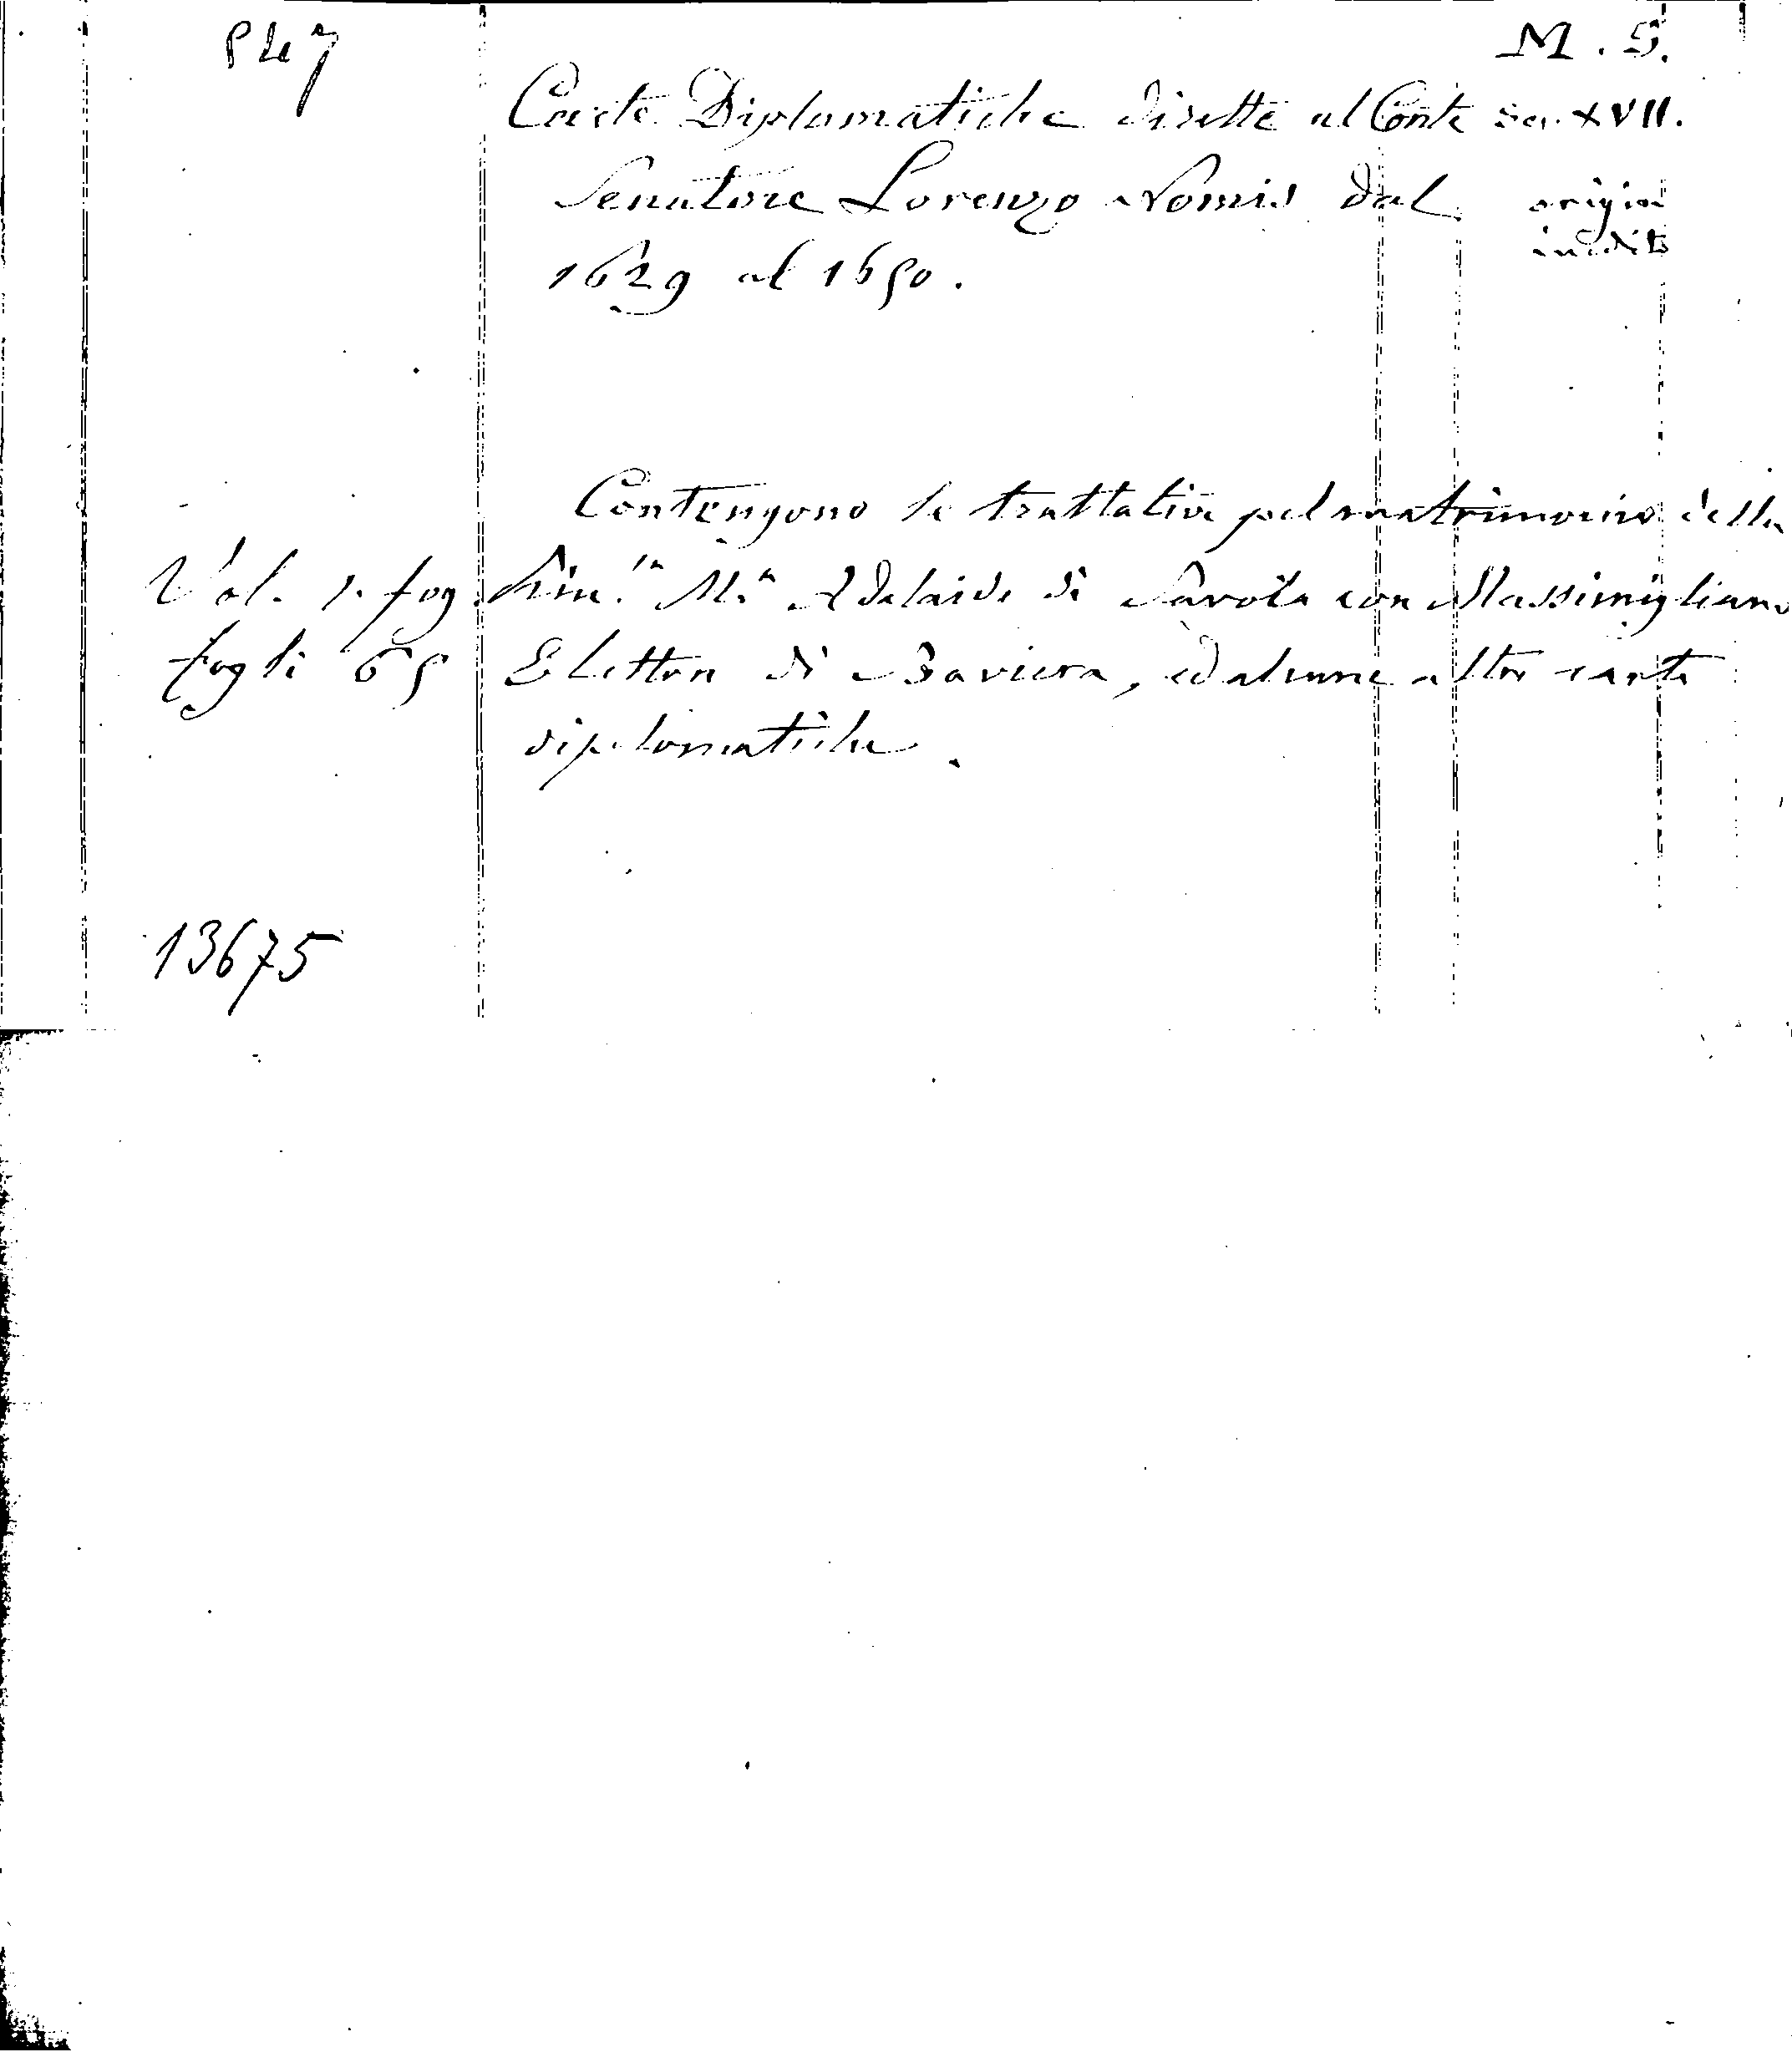 547
M. S.
Carte Diplomatiche dirette al Conte sec. XVII.
Senatore Lorenzo Nomis dal origin
1629 al 1650. inedito
Contengono le trattative pel matrimonio della
Vol. 1. fog. Prin.ssa M.a Adelaide di Savoia con Massimigliano
fogli 65 Elettore di Baviera, ed alcune altre carte
diplomatiche.
13675